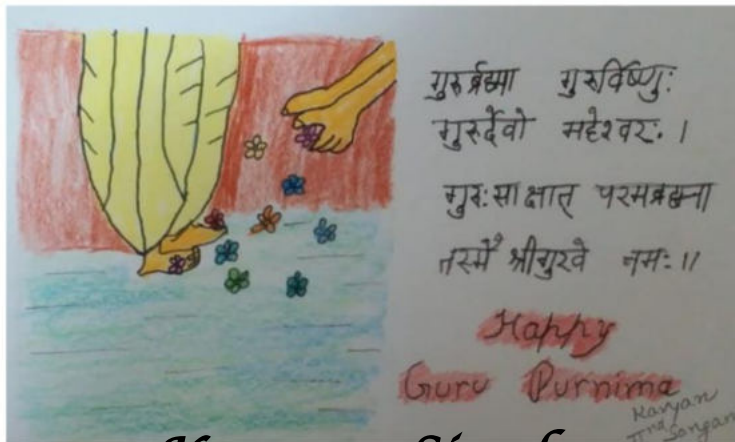 गुरुर्ब्रह्मा गुरुर्विष्णुः
गुरुर्देवो महेश्वरः ।
गुरुःसाक्षात् परमब्रह्मना
तस्मै श्रीगुरवे नमः ॥
Happy
Guru Purnima